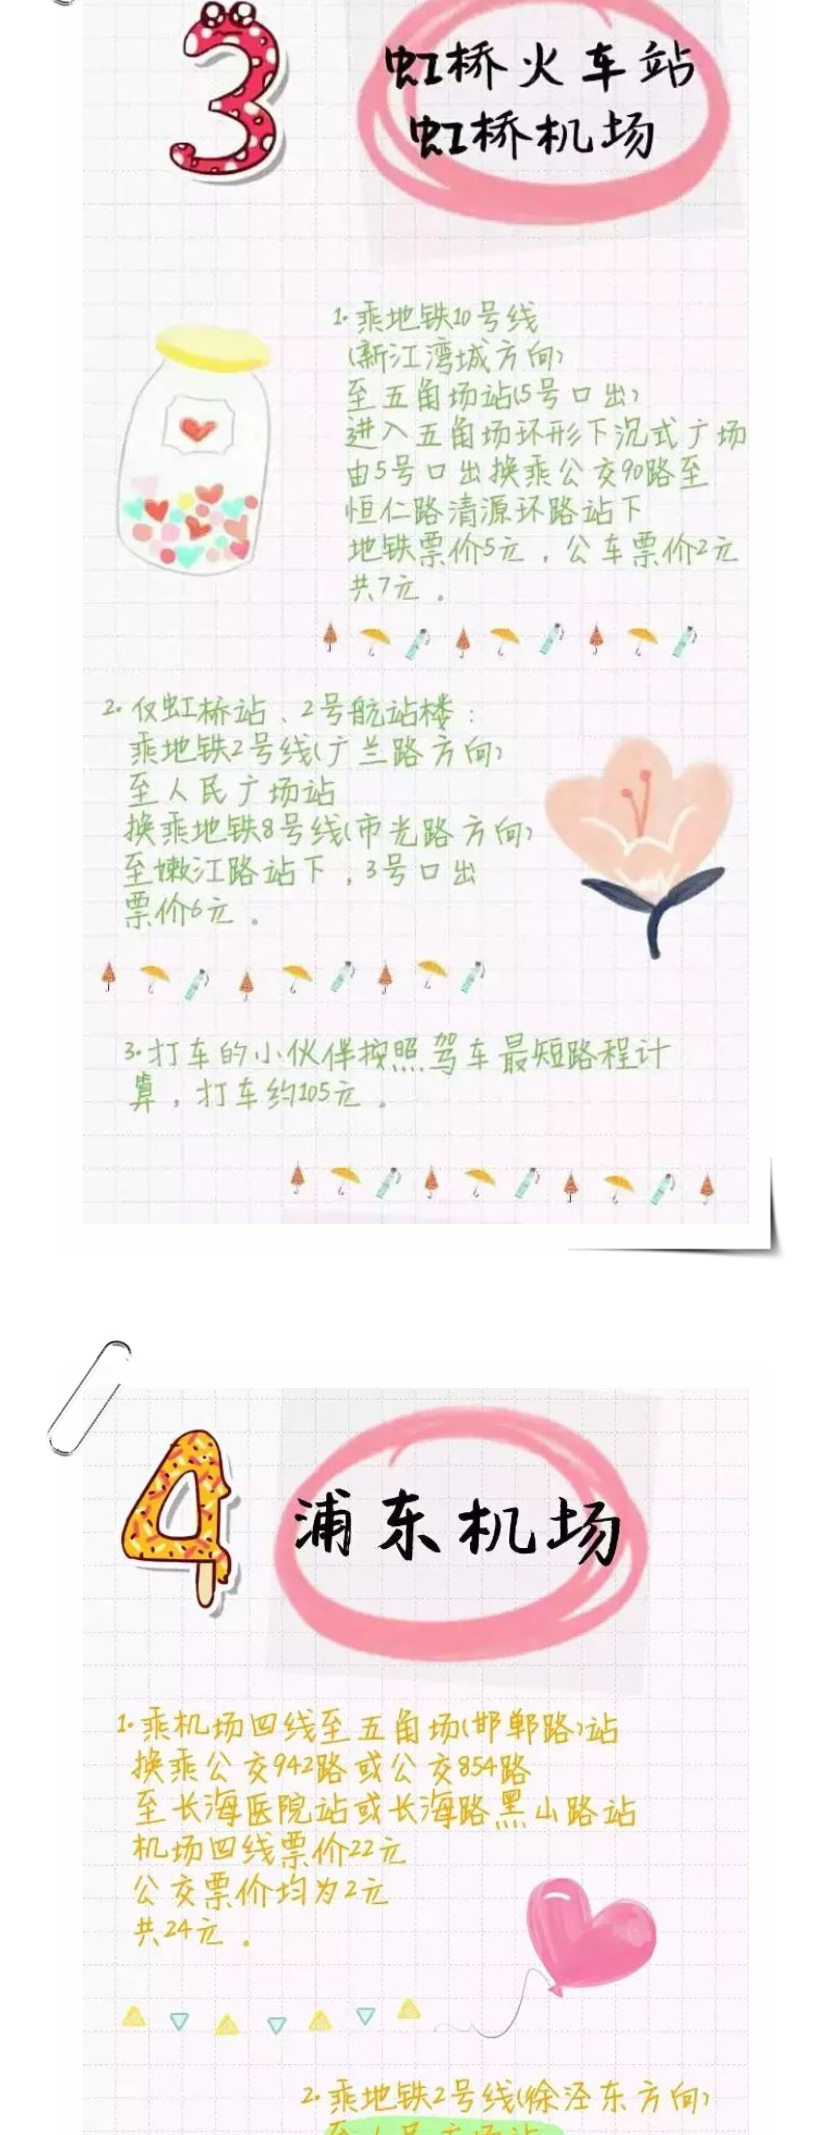 3
虹桥火车站
虹桥机场
1.乘地铁10号线
(新江湾城方向)
至五角场站(5号口出)
进入五角场环形下沉式广场
由5号口出换乘公交90路至
恒仁路清源环路站下
地铁票价5元，公车票价2元
共7元。
2.仅虹桥站、2号航站楼：
乘地铁2号线(广兰路方向)
至人民广场站
换乘地铁8号线(市光路方向)
至嫩江路站下，3号口出
票价6元。
3.打车的小伙伴按照驾车最短路程计
算，打车约105元。
4
浦东机场
1.乘机场四线至五角场(邯郸路)站
换乘公交942路或公交854路
至长海医院站或长海路黑山路站
机场四线票价22元
公交票价均为2元
共24元。
2.乘地铁2号线(徐泾东方向)